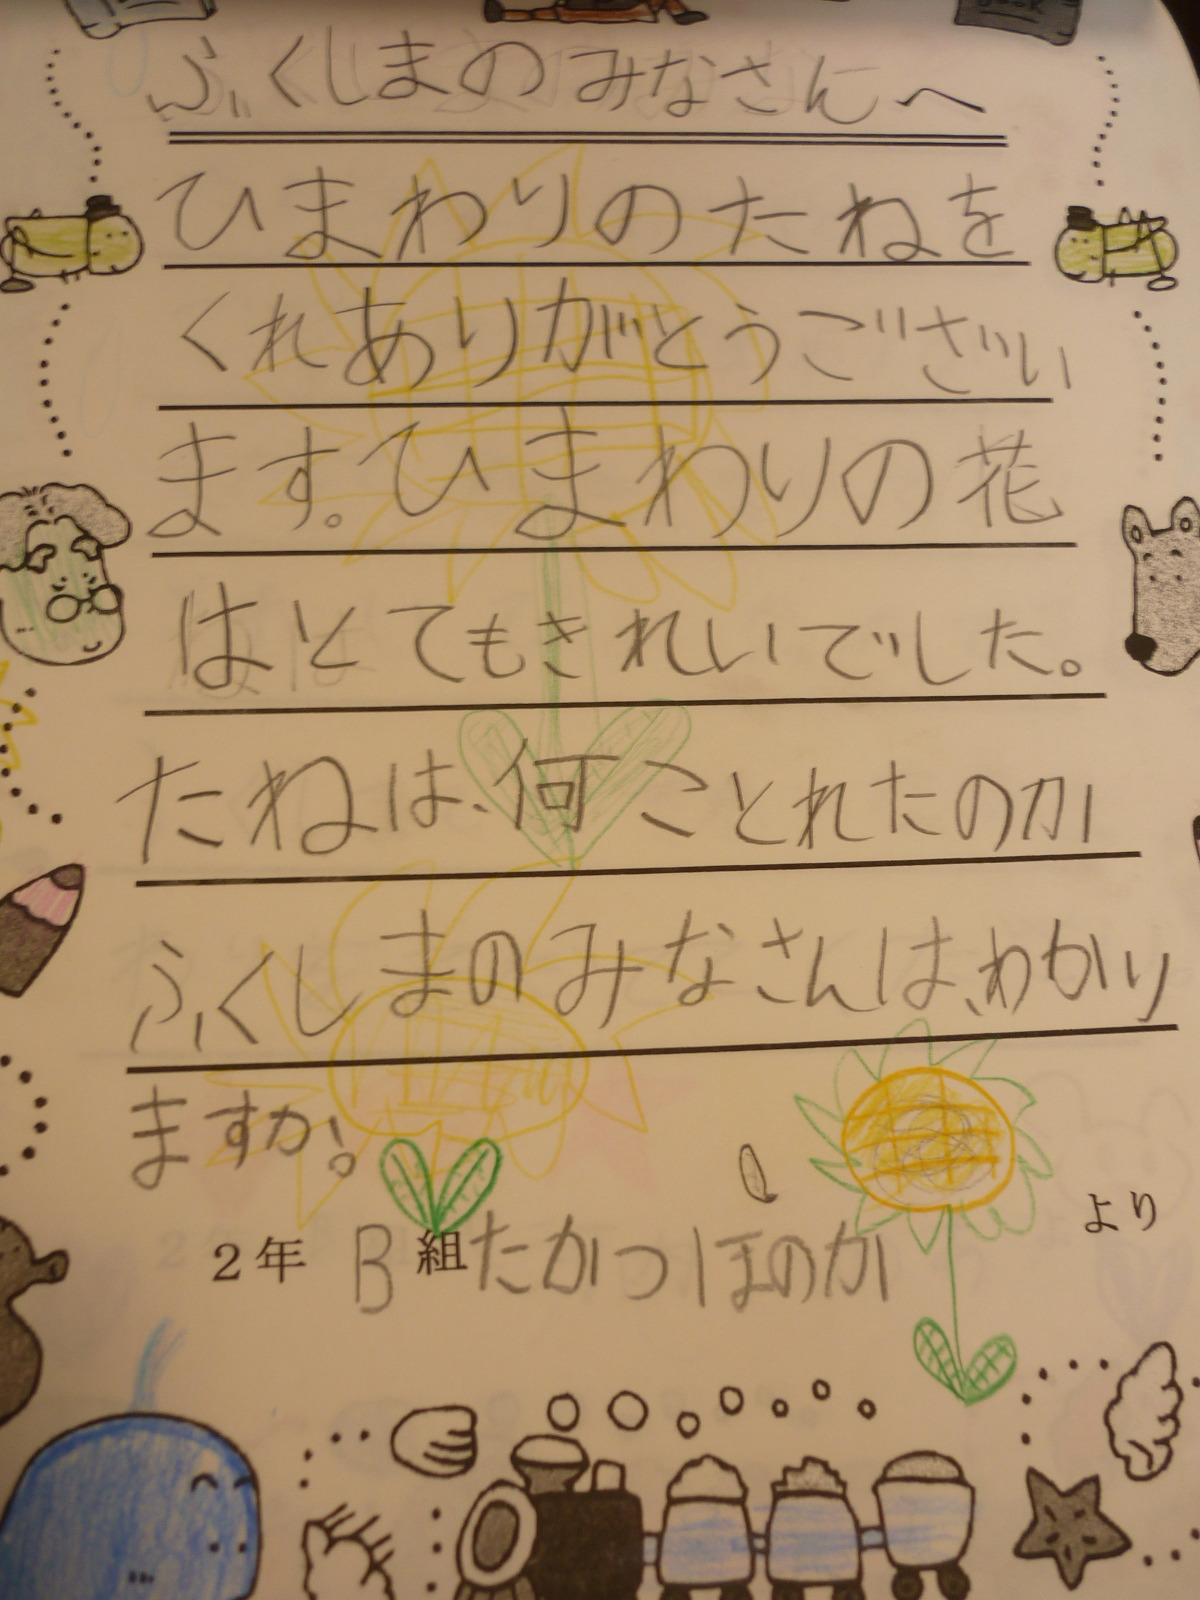 ふくしまのみなさんへ
ひまわりのたねを
くれありがとうござい
ます。ひまわりの花
はとてもきれいでした。
たねは、何ことれたのか
ふくしまのみなさんは、わかり
ますか!
2年 B組たかつほのか より